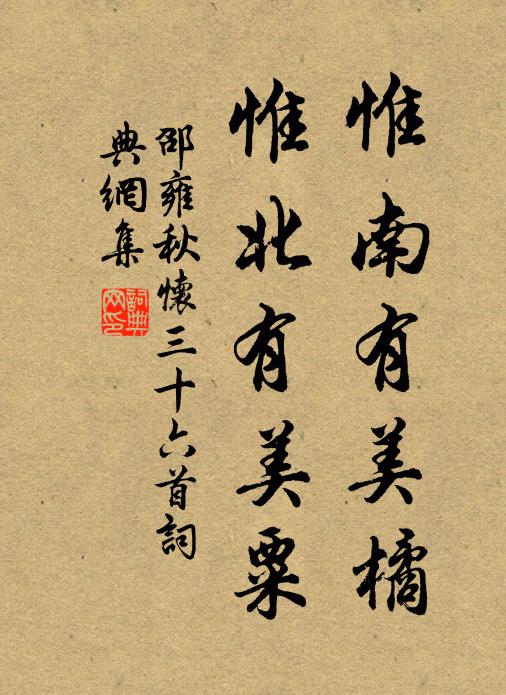 惟南有美橘
惟北有美粟
邵雍秋懷三十六首詞
典網集
詞典網印